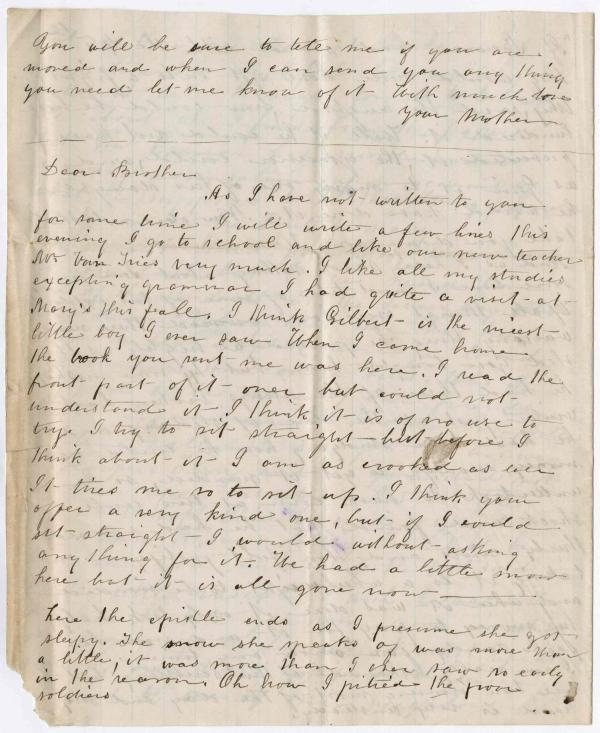 You will be sure to tele me if you are
moved and when I can send you any thing
you need let me know of it With much love
Your Mother
Dear Brother
As I have not written to you
for some time I will write a few lines this
evening I go to school and like our new teacher
Mr Van Tries very much. I like all my studies
excepting grammar I had quite a visit at
Mary's this fall. I think Gilbert is the nicest
little boy I ever saw When I came home
the book you sent me was here. I read the
front part of it over but could not
understand it I think it is of no use to
try. I try to sit straight but before I
think about it I am as crooked as ever
It tires me so to sit up. I think your
offer a very kind one, but if I could
sit straight I would without asking
any thing for it. We had a little snow
here but it is all gone now
here the epistle ends as I presume she got
sleepy. The snow she speaks of was more than
a little, it was more than I ever saw so early
in the season. Oh how I pitied the poor
soldiers